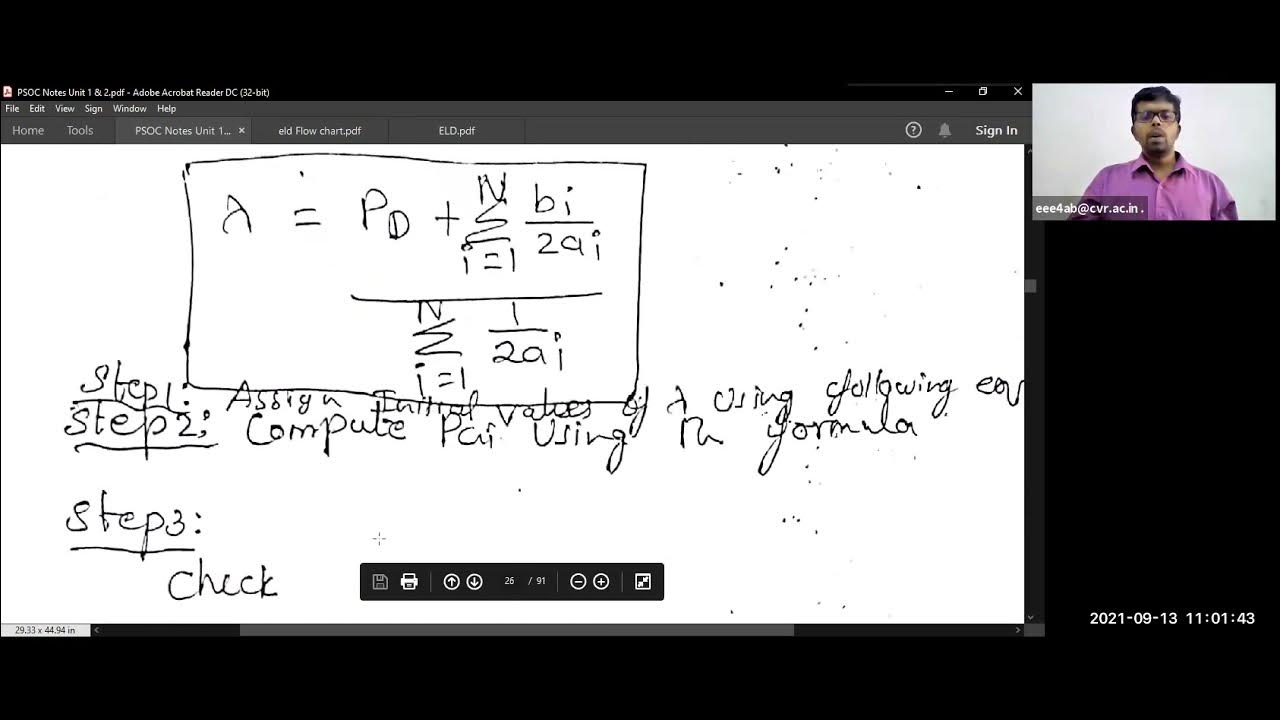 PSOC Notes Unit 1 & 2.pdf - Adobe Acrobat Reader DC (32-bit)
File Edit View Sign Window Help
Home Tools PSOC Notes Unit 1... × eld Flow chart.pdf ELD.pdf Sign In
λ = P_D + Σ_{i=1}^{N} bi/2ai
Σ_{i=1}^{N} 1/2ai
Step1: Assign Initial values of λ using following eqn
Step2: Compute PGi Using formula
Step3:
Check
26 / 91
29.33 x 44.94 in
eee4ab@cvr.ac.in .
2021-09-13 11:01:43